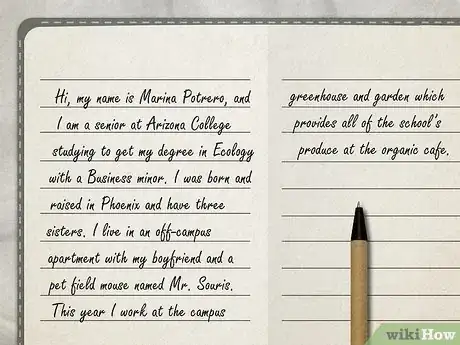 Hi, my name is Marina Potrero, and
I am a senior at Arizona College
studying to get my degree in Ecology
with a Business minor. I was born and
raised in Phoenix and have three
sisters. I live in an off-campus
apartment with my boyfriend and a
pet field mouse named Mr. Souris.
This year I work at the campus
greenhouse and garden which
provides all of the school's
produce at the organic cafe.
wikiHow